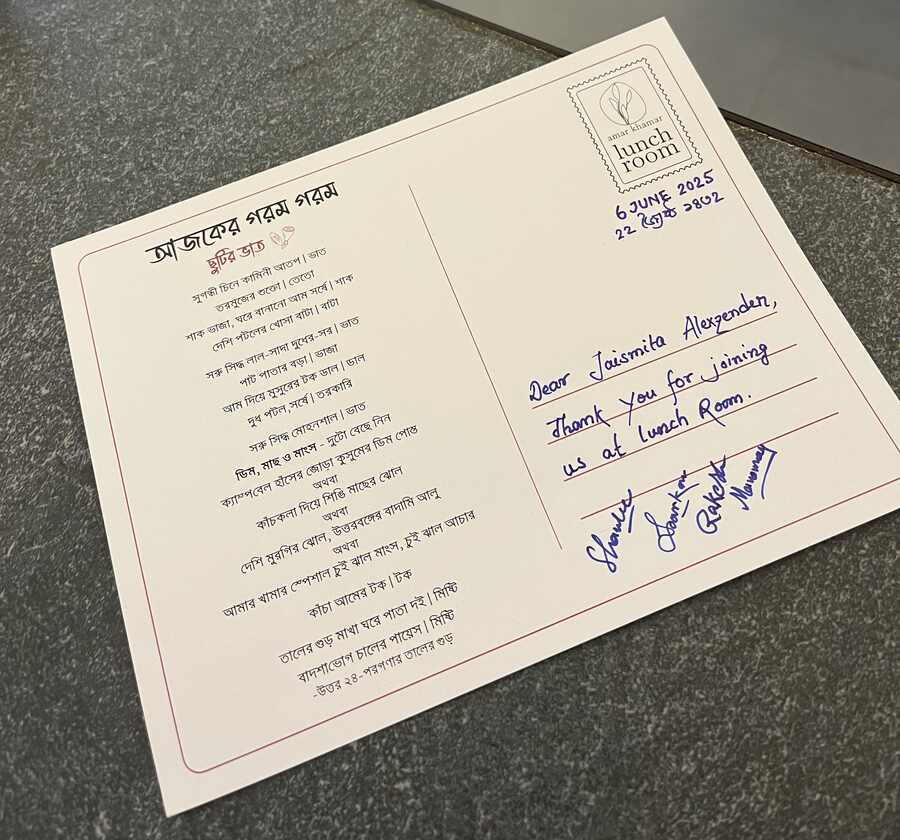 আজকের গরম গরম
ছুটির ভাত
সুগন্ধী চিনে কামিনী আতপ | ভাত
তরমুজের শুক্তো | তেতো
শাক ভাজা, ঘরে বানানো আম সর্ষে | শাক
দেশি পটলের খোসা বাটা | বাটা
সরু সিদ্ধ লাল-সাদা দুধের-সর | ভাত
পাট পাতার বড়া | ভাজা
আম দিয়ে মুসুরের টক ডাল | ডাল
দুধ পটল,সর্ষে | তরকারি
সরু সিদ্ধ মোহনশাল | ভাত
ডিম, মাছ ও মাংস - দুটো বেছে নিন
ক্যাম্পবেল হাঁসের জোড়া কুসুমের ডিম পোস্ত
অথবা
কাঁচকলা দিয়ে শিঙি মাছের ঝোল
অথবা
দেশি মুরগির ঝোল, উত্তরবঙ্গের বাদামি আলু
অথবা
আমার খামার স্পেশাল চুই ঝাল মাংস, চুই ঝাল আচার
কাঁচা আমের টক | টক
তালের গুড় মাখা ঘরে পাতা দই | মিষ্টি
বাদশাভোগ চালের পায়েস | মিষ্টি
-উত্তর ২৪-পরগণার তালের গুড়
amar khamar
lunch
room
6 JUNE 2025
22 জ্যৈষ্ঠ ১৪৩২
Dear Jaismita Alexzender,
Thank you for joining
us at Lunch Room.
Rakesh